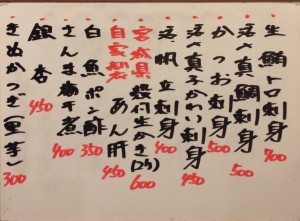 生鮪トロ刺身 700
かつお刺身 500
活〆真鯛刺身 500
活〆真子かわい刺身 450
活帆立刺身 400
宮城県殻付生かき(2ヶ) 600
自家製あん肝 450
白魚ポン酢 350
さんま梅干煮 400
銀杏 450
きぬかつぎ(里芋) 300